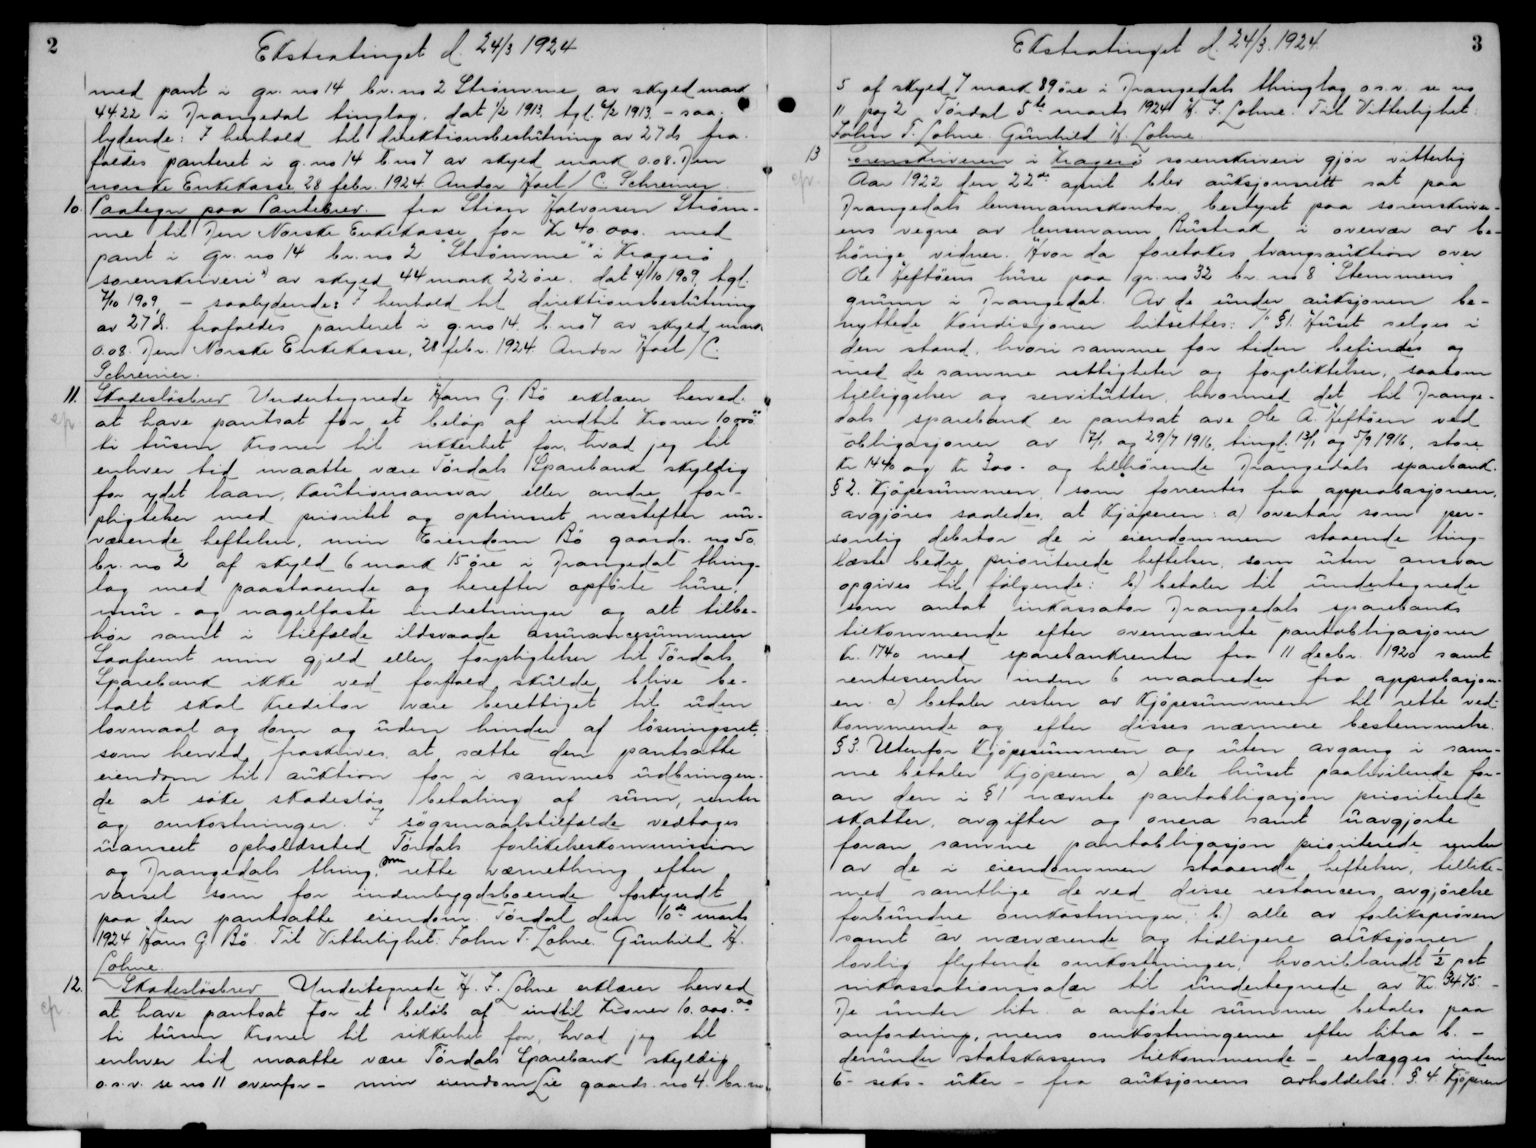 2
Ekstratinget d. 24/3 1924
med pant i gr. no 14 br. no 2 Strømme, av skyld mark
44 22 i Drangedal tinglag, dat 1/2 1913, tgl. 4/2 1913 - saa-
lydende: I henhold til direktionsbeslutning av 27 ds fra-
faldes panteret i g. no 14 b no 7 av skyld mark 0.08. Den
norske Enkekasse 28 febr. 1924 Andor Hoel / C. Schreiner.
10. Paategn paa Pantebrev. fra Stian Halvorsen Strøm-
me til Den Norske Enkekasse for Kr 40.000. med
pant i gr. no 14 br. no 2 "Strømme" i Kragerø
sorenskriveri av skyld 44 mark 22 øre. dat 4/10 1909, tgl.
7/10 1909, - saalydende: I henhold til direktionsbeslutning
av 27 ds. frafaldes panteret i g. no 14. b no 7 av skyld mark
0.08. Den Norske Enkekasse, 28 febr. 1924. Andor Hoel / C.
Schreiner.
11. Skadesløsbrev Undertegnede Hans G. Bö erklærer herved
ep at have pantsat for et beløp af indtil Kroner 10000 00
ti tusen Kroner til sikkerhet for, hvad jeg til
enhver tid maatte være Tördals Sparebank skyldig
for ydet laan, Kautionsansvar eller andre for-
pligtelser med prioritet og optrinsret næstefter nu-
værende heftelser, min Eiendom Bö gaards. no 50.
br. no 2 af skyld 6 mark 15 øre i Drangedal thing-
lag med paastaaende og herefter opførte huse,
mur- og nagelfaste indretninger og alt tilbe-
hör samt i tilfælde ildsvaade assurancesummen
Saafremt min gjeld eller forpligtelser til Tördals
Sparebank ikke ved forfald skulde blive be-
talt skal Kreditor være berettiget til uden
lovmaal og dom og uden hinder af løsningsret,
som herved fraskrives, at sætte den pantsatte
eiendom til auktion for i sammes udbringen-
de at söke skadesløs betaling af sum, renter
og omkostninger. I søgsmaalstilfælde vedtages
uanseet opholdssted Tördals forlikelseskommission
og Drangedals thing, som rette værnething efter
varsel som for indenbygdsboende forkyndt
paa den pantsatte eiendom. Tördal den 10de marts
1924 Hans G. Bö. Til Vitterlighet: John T. Lohne. Gunhild H.
Lohne.
12. Skadesløsbrev Undertegnede H. J. Lohne erklærer herved
ep. at have pantsat for et beløb af indtil Kroner 10.000.00
ti tusen Kroner til sikkerhet for, hvad jeg til
enhver tid maatte være Tördals Sparebank skyldig
o.s.v. se no 11 ovenfor - min eiendom Lie gaards. no 4. br. no
Ekstratinget d. 24/3. 1924.
3
5 af skyld 7 mark 89 øre i Drangedals thinglag o.s.v. se no
11 pag 2 Tördal 5te marts 1924 H. J. Lohne. Til Vitterlighet:
John T. Lohne. Gunhild H. Lohne.
13 Sorenskriveren i Kragerø sorenskriveri gjör vitterlig
ep. Aar 1922 den 22de april blev auksjonsrett sat paa
Drangedals lensmannskontor, bestyret paa sorenskriver-
ens vegne av lensmann Bustrak i overvær av be-
hörige vidner. Hvor da foretokes tvangsauktion over
Ole Heftöens huse paa gr. no 32 br. no 8 "Stemmens"
grunn i Drangedal. Av de under auksjonen be-
nyttede Kondisjoner hitsettes: § 1. Huset selges i
den stand, hvori samme for tiden befindes og
med de samme rettigheter og forpliktelser, saasom
tilliggelser og servitutter, hvormed det til Drange-
dals sparebank er pantsat ave Ole A. Heftöen ved
obligasjoner av 7/1 og 29/7 1916, tingl. 13/1 og 5/9 1916, store
Kr 1440 og Kr 300.- og tilhørende Drangedals sparebank.
§ 2. Kjöpesummen, som forrentes fra approbasjonen,
avgjöres saaledes, at Kjöperen: a) overtar som per-
sonlig debitor de i eiendommen staaende ting-
læste bedre prioriterede heftelser, som uten ansvar
opgives til fölgende: b) betaler til undertegnede
som antat inkassator Drangedals sparebanks
tilkommende efter ovennævnte pantobligasjoner
Kr. 1740 med sparebankrenter fra 11 decbr. 1920 samt
rentesrenter inden 6 maaneder fra approbasjon-
en. c) betaler resten av Kjöpesummen til rette ved-
Kommende og efter disses nærmere bestemmelse.
§ 3. Utenfor Kjöpesummen og uten avgang i sam-
me betaler Kjöperen a) alle huset paahvilende for-
an den i § 1 nævnte pantobligasjon prioriterede
skatter, avgifter og onera samt uavgjorte
foran samme pantobligasjon prioriterede renter
av de i eiendommen staaende heftelser, tillike-
med samtlige de ved disse restancers avgjörelse
forbundne omkostninger; b) alle av forliksprøven
samt av nærværende og tidligere auksjoner
lovlig flytende omkostninger, hvoriblandt 1/2 pct
inkassationssalær til undertegnede av Kr. 3475.-
De under litr. a anförte summer betales paa
anfordring, mens omkostningerne efter litra b. -
derunder statskassens tilkommende - erlægges inden
6- seks - uker - fra auksjonens avholdelse. § 4. Kjöperen